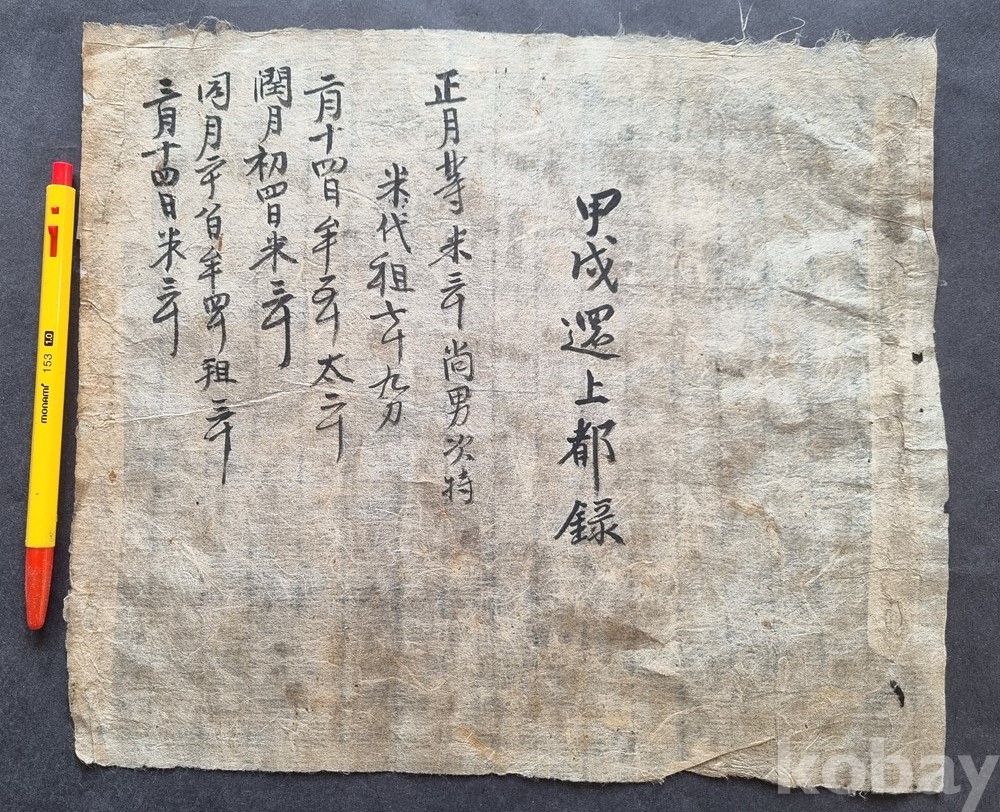 甲戌還上都錄
正月等米三斗尙男次特
米代租七斗九刀
二月十四日牟五斗太二斗
閏月初四日米三斗
同月二十八日牟四斗租三斗
三月十四日米三斗
monami 153 1.0
kobay